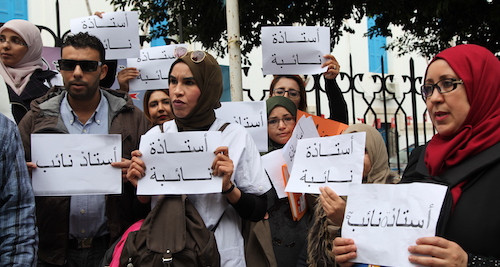 أستاذة
نائبة
أستاذة
نائبة
أستاذة
نائبة
أستاذ نائب
أستاذة
نائبة
أستاذة
نائبة
أستاذ نائب